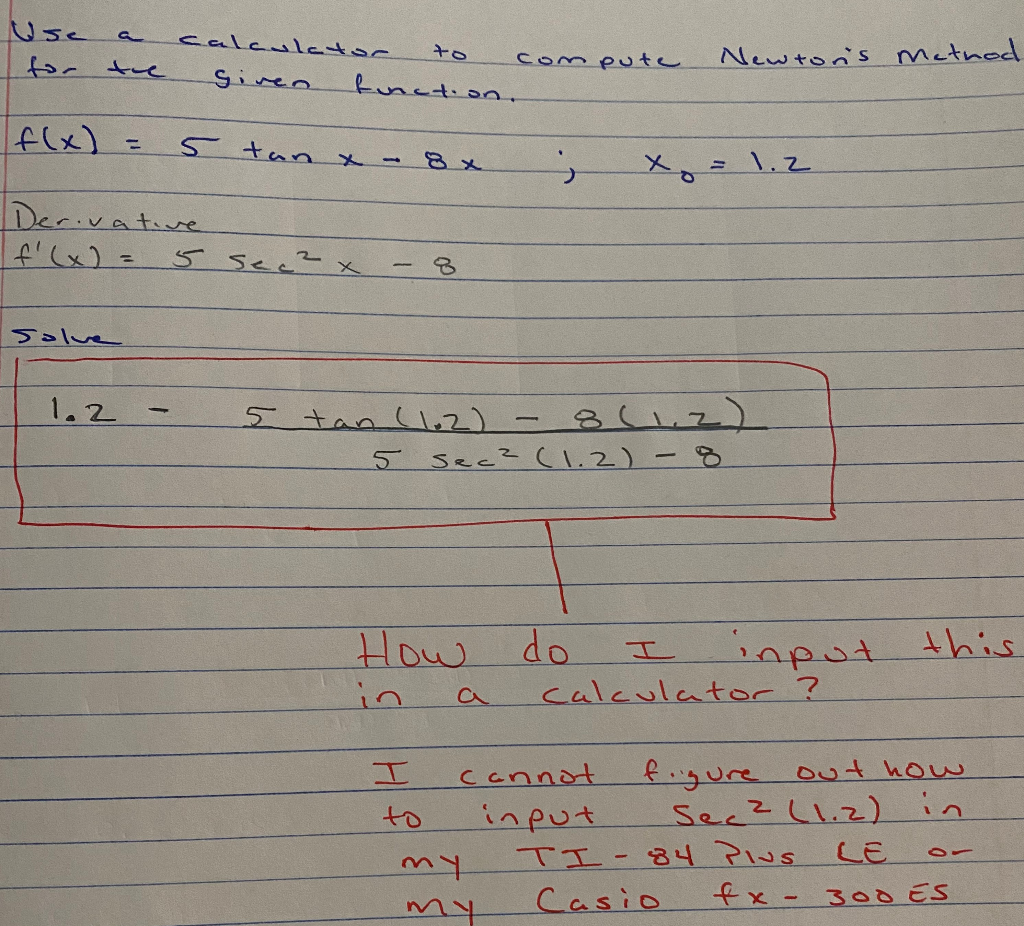 Use a calculator to compute Newton's Method
for the given function.
f(x) = 5 tan x - 8x ; x₀ = 1.2
Derivative
f'(x) = 5 sec² x - 8
Solve
1.2 - 5 tan (1.2) - 8(1.2)
5 sec² (1.2) - 8
How do I input this
in a calculator?
I cannot figure out how
to input Sec² (1.2) in
my TI-84 Plus CE or
my Casio fx-300ES